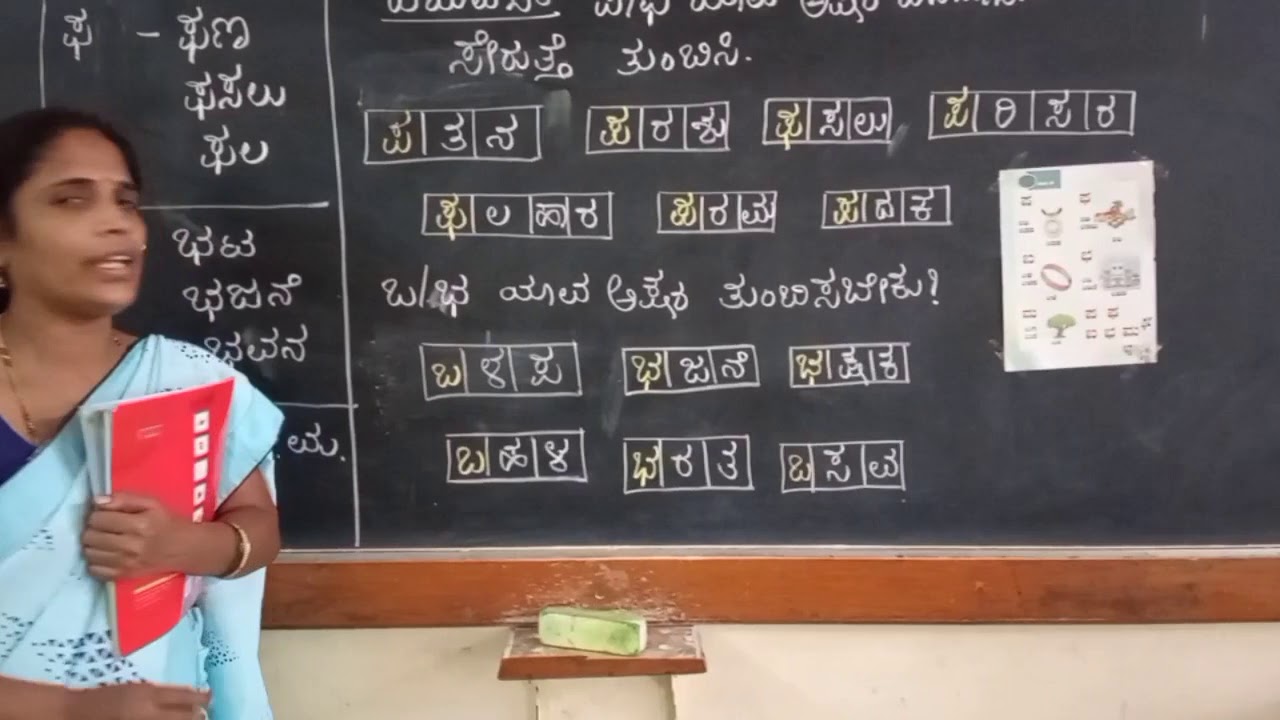 ಫ - ಫಣ
ಫಸಲು
ಫಲ
ಭಟ
ಭಜನೆ
ಭವನ
ಯ.
ಪ/ಫ ಯಾವ ಅಕ್ಷರ
ಸೇರುತ್ತೆ ತುಂಬಿಸಿ.
ಪ ತ ನ ಪ ರ ಶು ಫ ಸ ಲು ಪ ರಿ ಸ ರ
ಫ ಲ ಹಾ ರ ಪ ರ ಮ ಪ ದ ಕ
ಬ/ಭ ಯಾವ ಅಕ್ಷರ ತುಂಬಿಸಬೇಕು?
ಬ ಳ ಪ ಭ ಜ ನೆ ಭ ಕ್ಷ ಕ
ಬ ಹ ಳ ಭ ರ ತ ಬ ಸ ವ